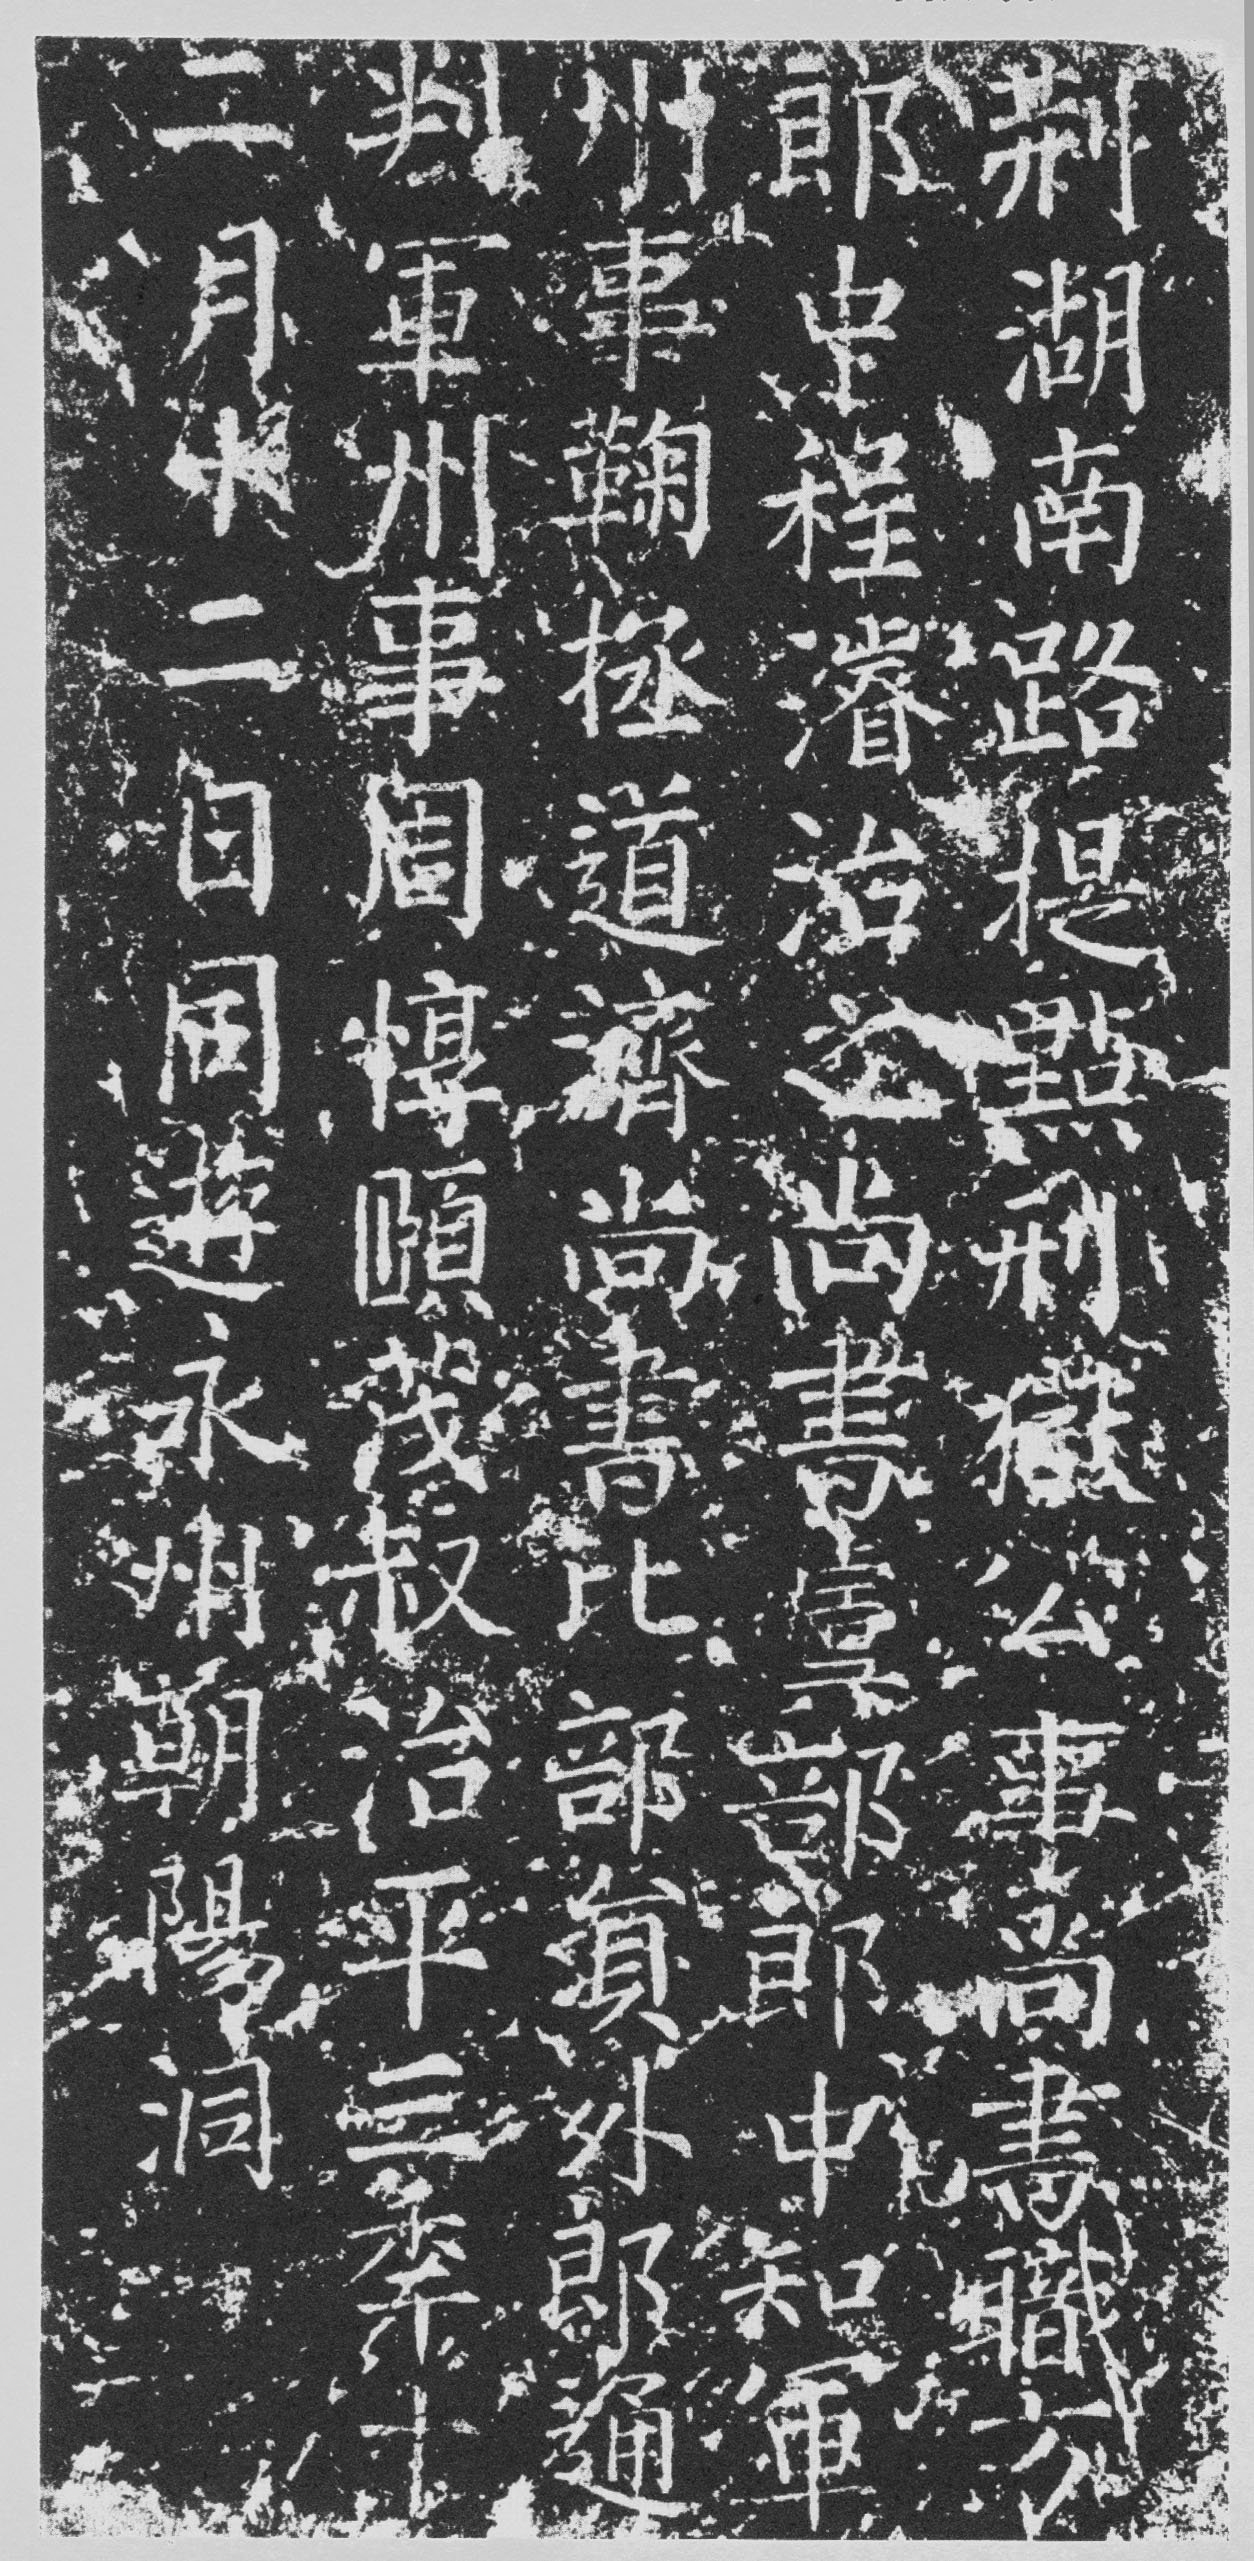 荆湖南路提點刑獄公事尚書職方
郎中程濬治之尚書虞部郎中知軍
州事鞠拯道濟尚書比部員外郎通
判軍州事周惇頤茂叔治平三秊十
二月十二日同遊永州朝陽洞